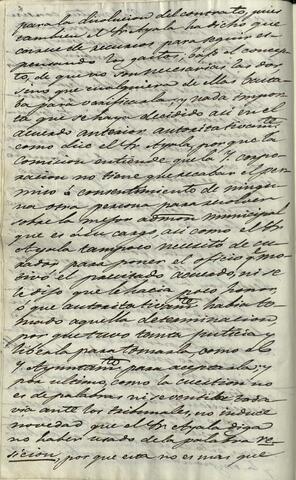 para la disolucion del contrato, pues
tambien el Sr. Ayala ha dicho que
carece de recursos para seguir es-
pensando los gastos, bajo el concep-
to, de que no son necesarias las dos
sino que cualquiera de ellas basta-
ba para verificarla; y nada impor-
ta que se haya decidido asi en el
acuerdo anterior autoritativamte.
como dice el Sr. Ayala, porque la
comision entiende que la Y. corpo-
racion no tiene que recabar el per-
miso ó consentimiento de ningu-
na otra persona para resolver
sobre la mejor admon municipal
que es á su cargo, asi como el Sr.
Ayala tampoco necesitó de cui-
dados para poner el oficio q. mo-
tivó el precitado acuerdo, ni se
le dijo que le hacia poco favor,
ó que autoritativamte. habia to-
mado aquella determinacion,
por que tuvo tanta justicia y
libertad para tomarla, como el
Y. Ayuntamto. para aceptarla; y
por ultimo, como la cuestion no
es de palabras ni se ventila toda-
via ante los tribunales, no induce
novedad que el Sr. Ayala diga
no haber usado de la palabra re-
sicion, por que esta no es mas que